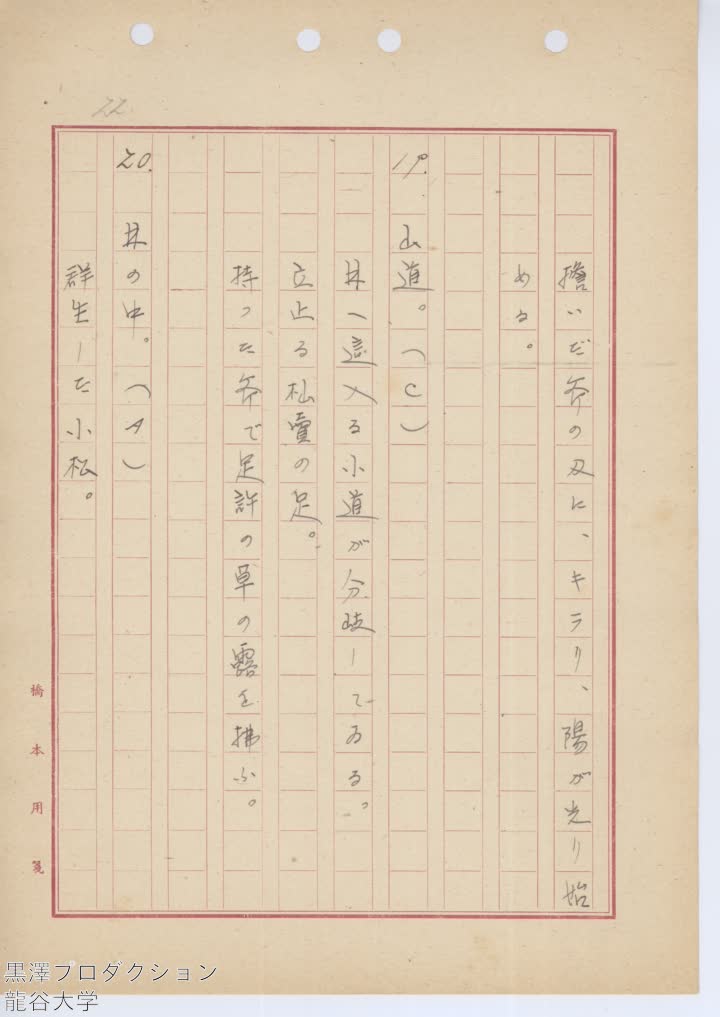 22
擔いだ斧の刄に、キラリ、陽が光り始
める。
19. 山道。(C)
林へ這入る小道が分岐してゐる。
立止る杣賣の足。
持った斧で足許の草の露を拂ふ。
20. 林の中。(A)
群生した小松。
橋本用箋
黒澤プロダクション
龍谷大学